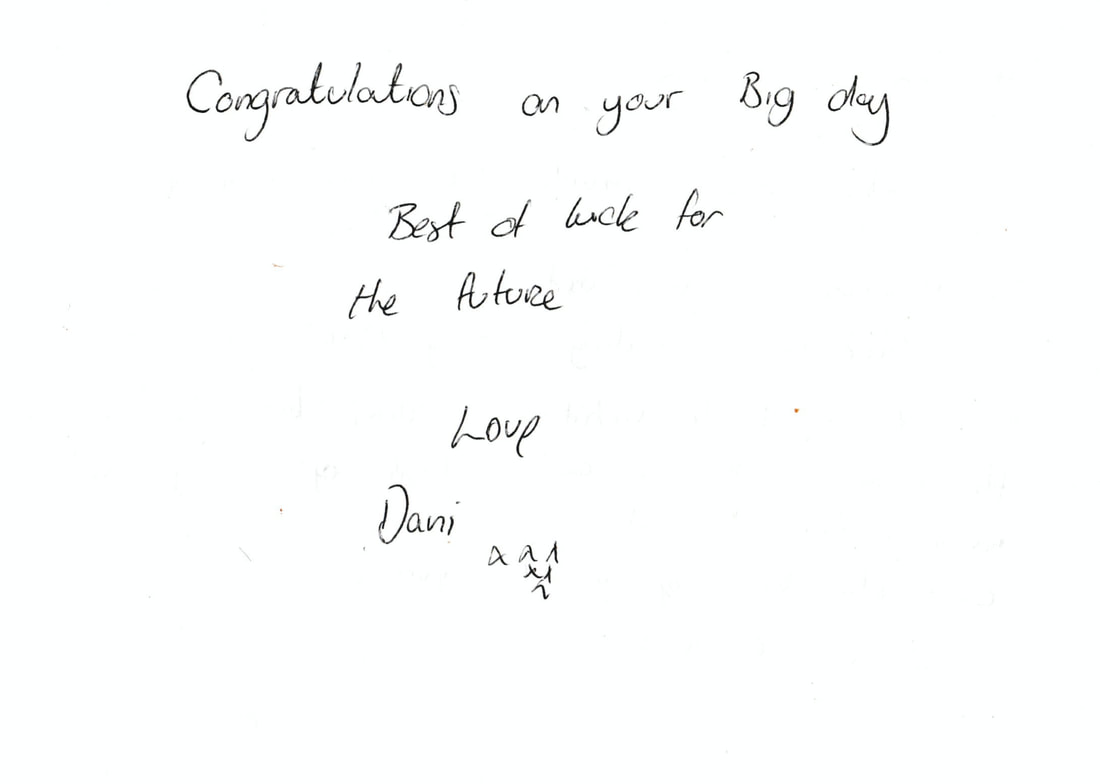 Congratulations on your Big day
Best of luck for
the future
Love
Dani
xxx
xx
x